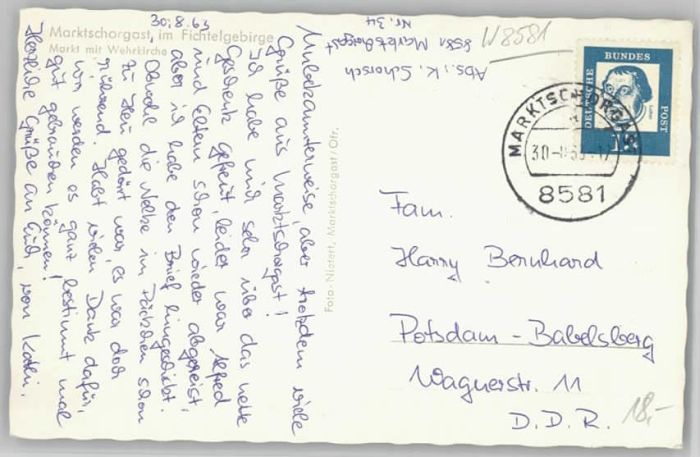 30.8.63
Marktschorgast, im Fichtelgebirge
Markt mit Wehrkirche
Unbekannterweise, aber trotzdem viele
Grüße aus Marktschorgast!
Ich habe mich sehr über das nette
Gedenk gefreut, leider war Alfred
und Eltern schon wieder abgereist,
aber ich habe den Brief hingeschickt.
Obwohl die Nelke im Päckchen schon
zu Heu gedörrt war, es war doch
rührend. Habt vielen Dank dafür,
wir werden es ganz bestimmt mal
gut gebrauchen können!
Herzliche Grüße an Euch, von
Abs.: K. Schorsch
8581 Marktschorgast
Nr. 34
W8581
Foto-Nietert, Marktschorgast/Ofr.
DEUTSCHE BUNDES POST
Luther
15
MARKTSCHORGAST
30.-8.63.-17
8581
Fam.
Harry Bernhard
Potsdam-Babelsberg
Wagnerstr. 11
D.D.R.
18,-